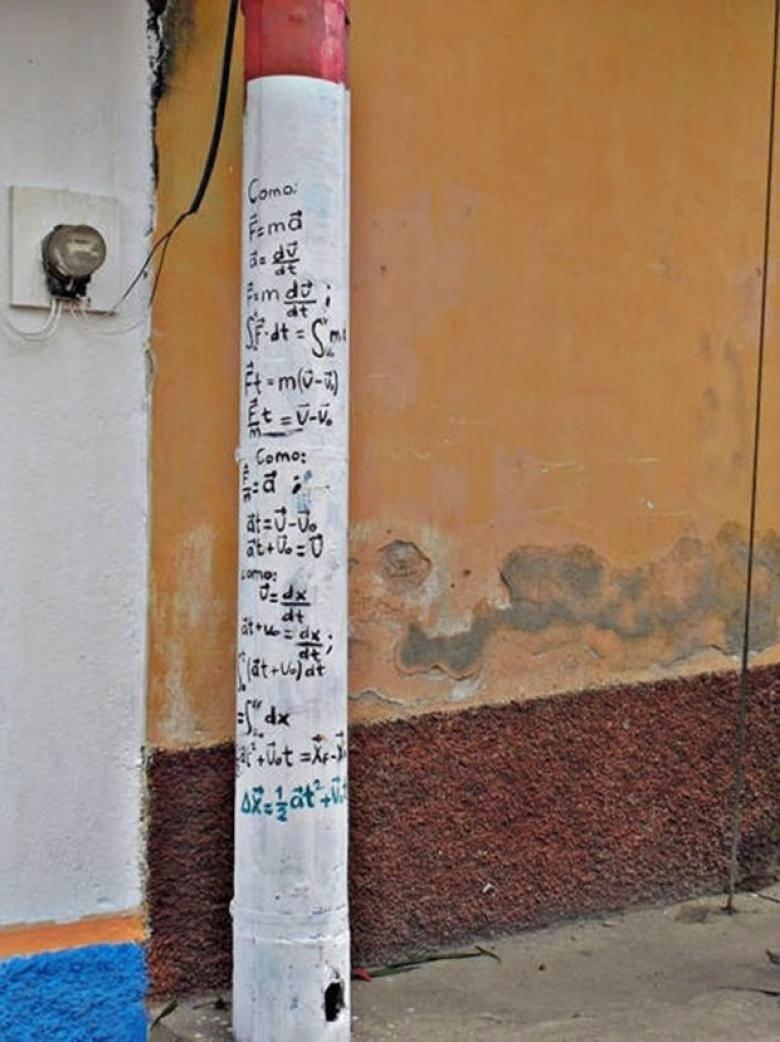 Como:
F⃗=ma⃗
a⃗=dv⃗/dt
F⃗=m dv⃗/dt ;
∫F⃗·dt = ∫m
F⃗t = m(v⃗-v⃗₀)
F⃗/m t = v⃗-v⃗₀
Como:
F⃗/m = a⃗ ;
a⃗t = v⃗-v⃗₀
a⃗t+v⃗₀ = v⃗
Como:
v⃗=dx/dt
a⃗t+v₀ = dx/dt ;
∫(a⃗t+v₀)dt
=∫dx
at²+v⃗₀t = x⃗f-x⃗
Δx⃗=½a⃗t²+v⃗₀t